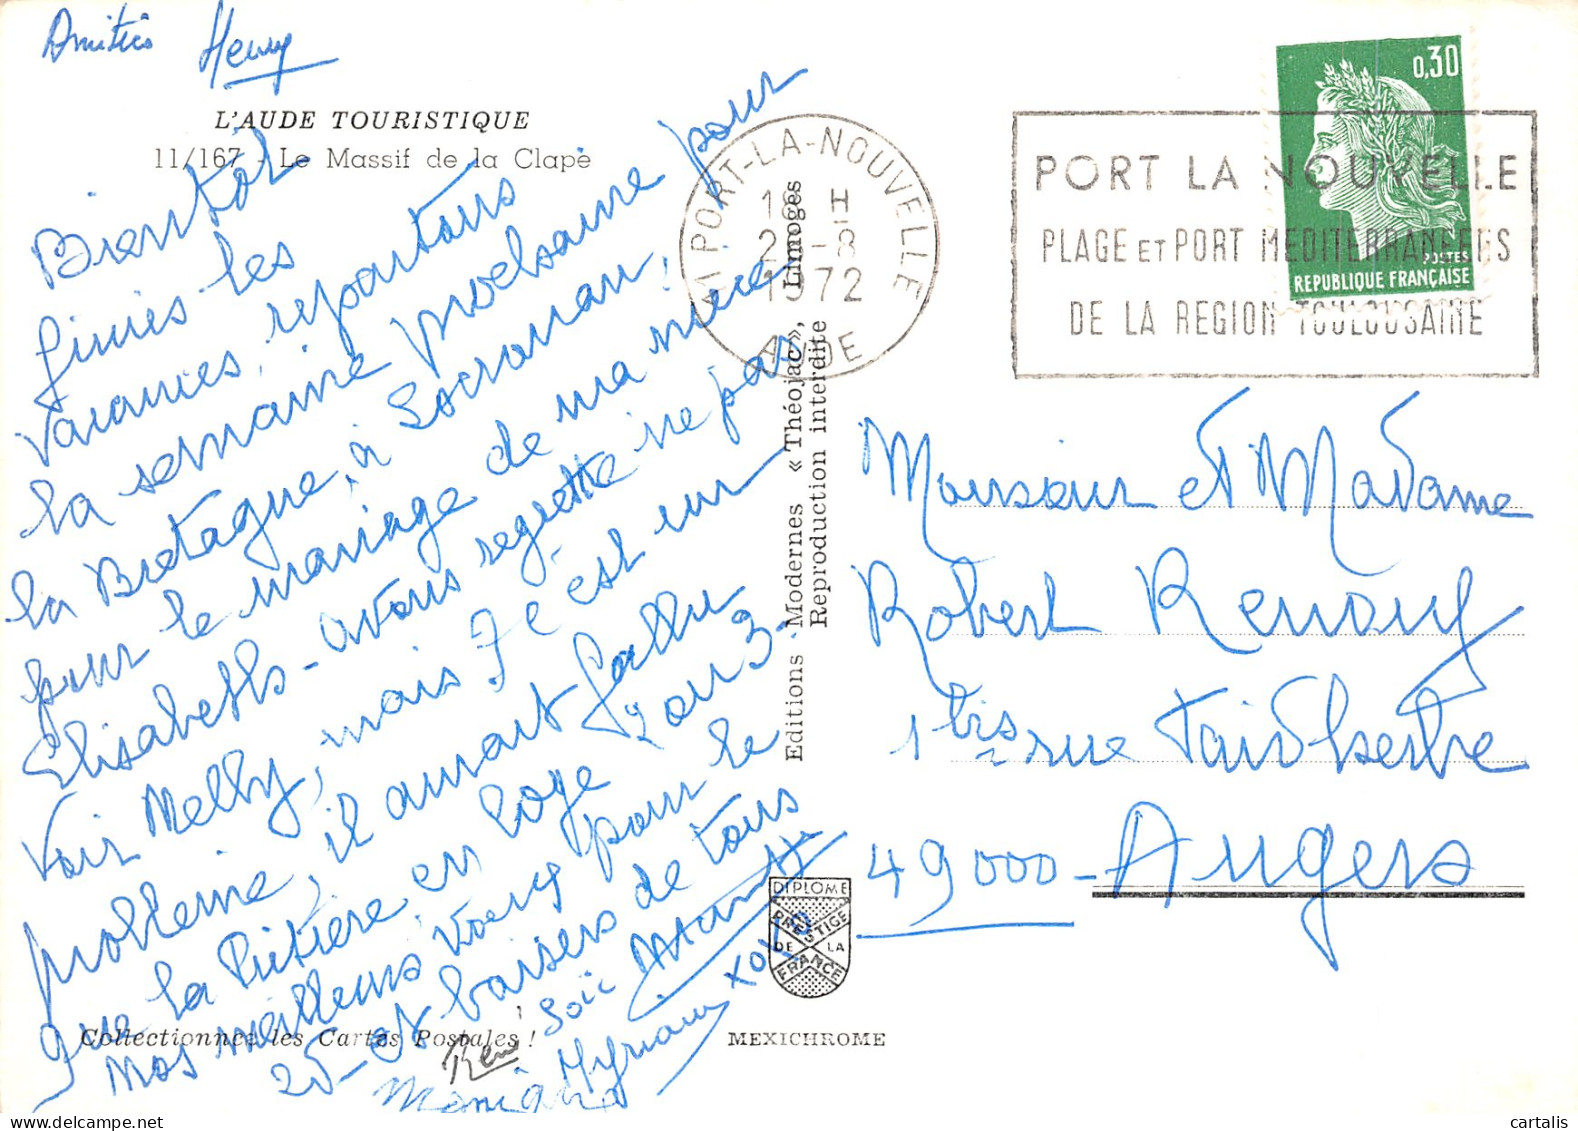 Amitiés Henry
L'AUDE TOURISTIQUE
11/167 - Le Massif de la Clape
Bientôt
finies les
vacances, repartons
la semaine prochaine pour
la Bretagne, à Locronan,
pour le mariage de ma nièce
Elisabeth - avons regretté ne pas
voir Nelly, mais c'est un
problème, il aurait fallu
que la Pitière en loge 2 ou 3 -
Nos meilleurs vœux pour le
25 - et baisers de tous
René Loïc
Monique Myriam xox
Collectionnez les Cartes Postales !
MEXICHROME
Editions Modernes « Théojac », Limoges
Reproduction interdite
DIPLOME
PRESTIGE
DE LA
FRANCE
11 PORT-LA-NOUVELLE
18 H
2 -8
1972
AUDE
PORT LA NOUVELLE
PLAGE ET PORT MEDITERRANEENS
DE LA REGION TOULOUSAINE
0,30
POSTES
REPUBLIQUE FRANÇAISE
Monsieur et Madame
Robert Renouf
1 bis rue Faidherbe
49000 - Angers
cartalis